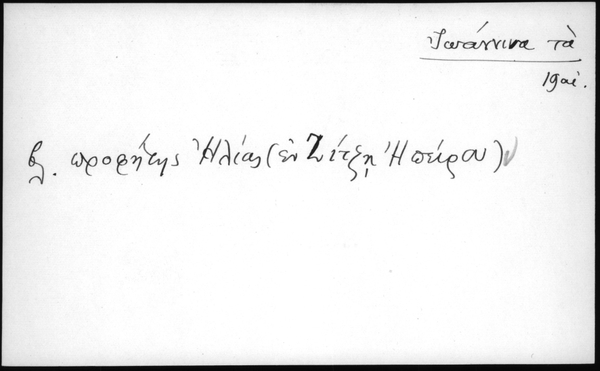 Ἰωάννινα τὰ
19αἰ.
βλ. προφήτης Ἠλίας (ἐν Ζίτξῃ Ἠπείρου)